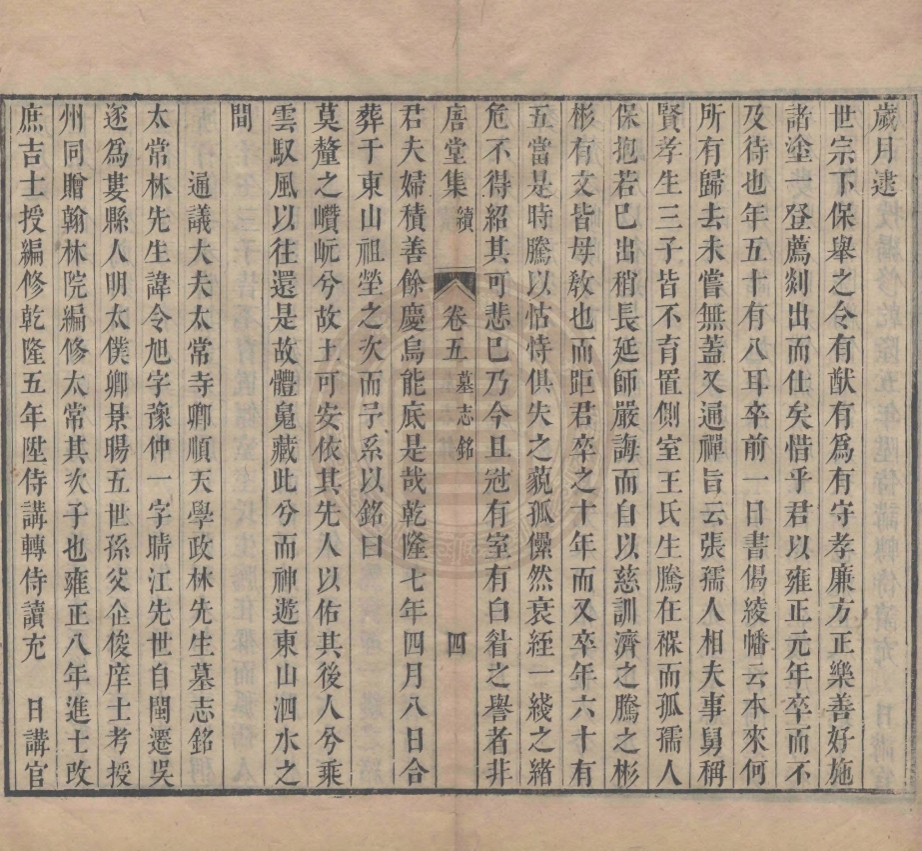 歲月逮
世宗下保舉之令有猷有爲有守孝廉方正樂善好施
諸塗一登薦剡出而仕矣惜乎君以雍正元年卒而不
及待也年五十有八耳卒前一日書偈綾幡云本來何
所有歸去未嘗無蓋又通禪旨云張孺人相夫事舅稱
賢孝生三子皆不育置側室王氏生騰在褓而孤孺人
保抱若已出稍長延師嚴誨而自以慈訓濟之騰之彬
彬有文皆母敎也而距君卒之十年而又卒年六十有
五當是時騰以怙恃俱失之藐孤儽然衰絰一綫之緒
危不得紹其可悲已乃今且冠有室有白眷之譽者非
唐堂集 續 卷五 墓志銘 四
君夫婦積善餘慶烏能底是哉乾隆七年四月八日合
葬于東山祖塋之次而予系以銘曰
莫釐之巑岏兮故土可安依其先人以佑其後人兮乘
雲馭風以往還是故體䰟藏此兮而神遊東山泗水之
間
通議大夫太常寺卿順天學政林先生墓志銘
太常林先生諱令旭字豫仲一字晴江先世自閩遷吳
遂爲婁縣人明太僕卿景暘五世孫父企俊庠士考授
州同贈翰林院編修太常其次子也雍正八年進士改
庶吉士授編修乾隆五年陞侍講轉侍讀充 日講官